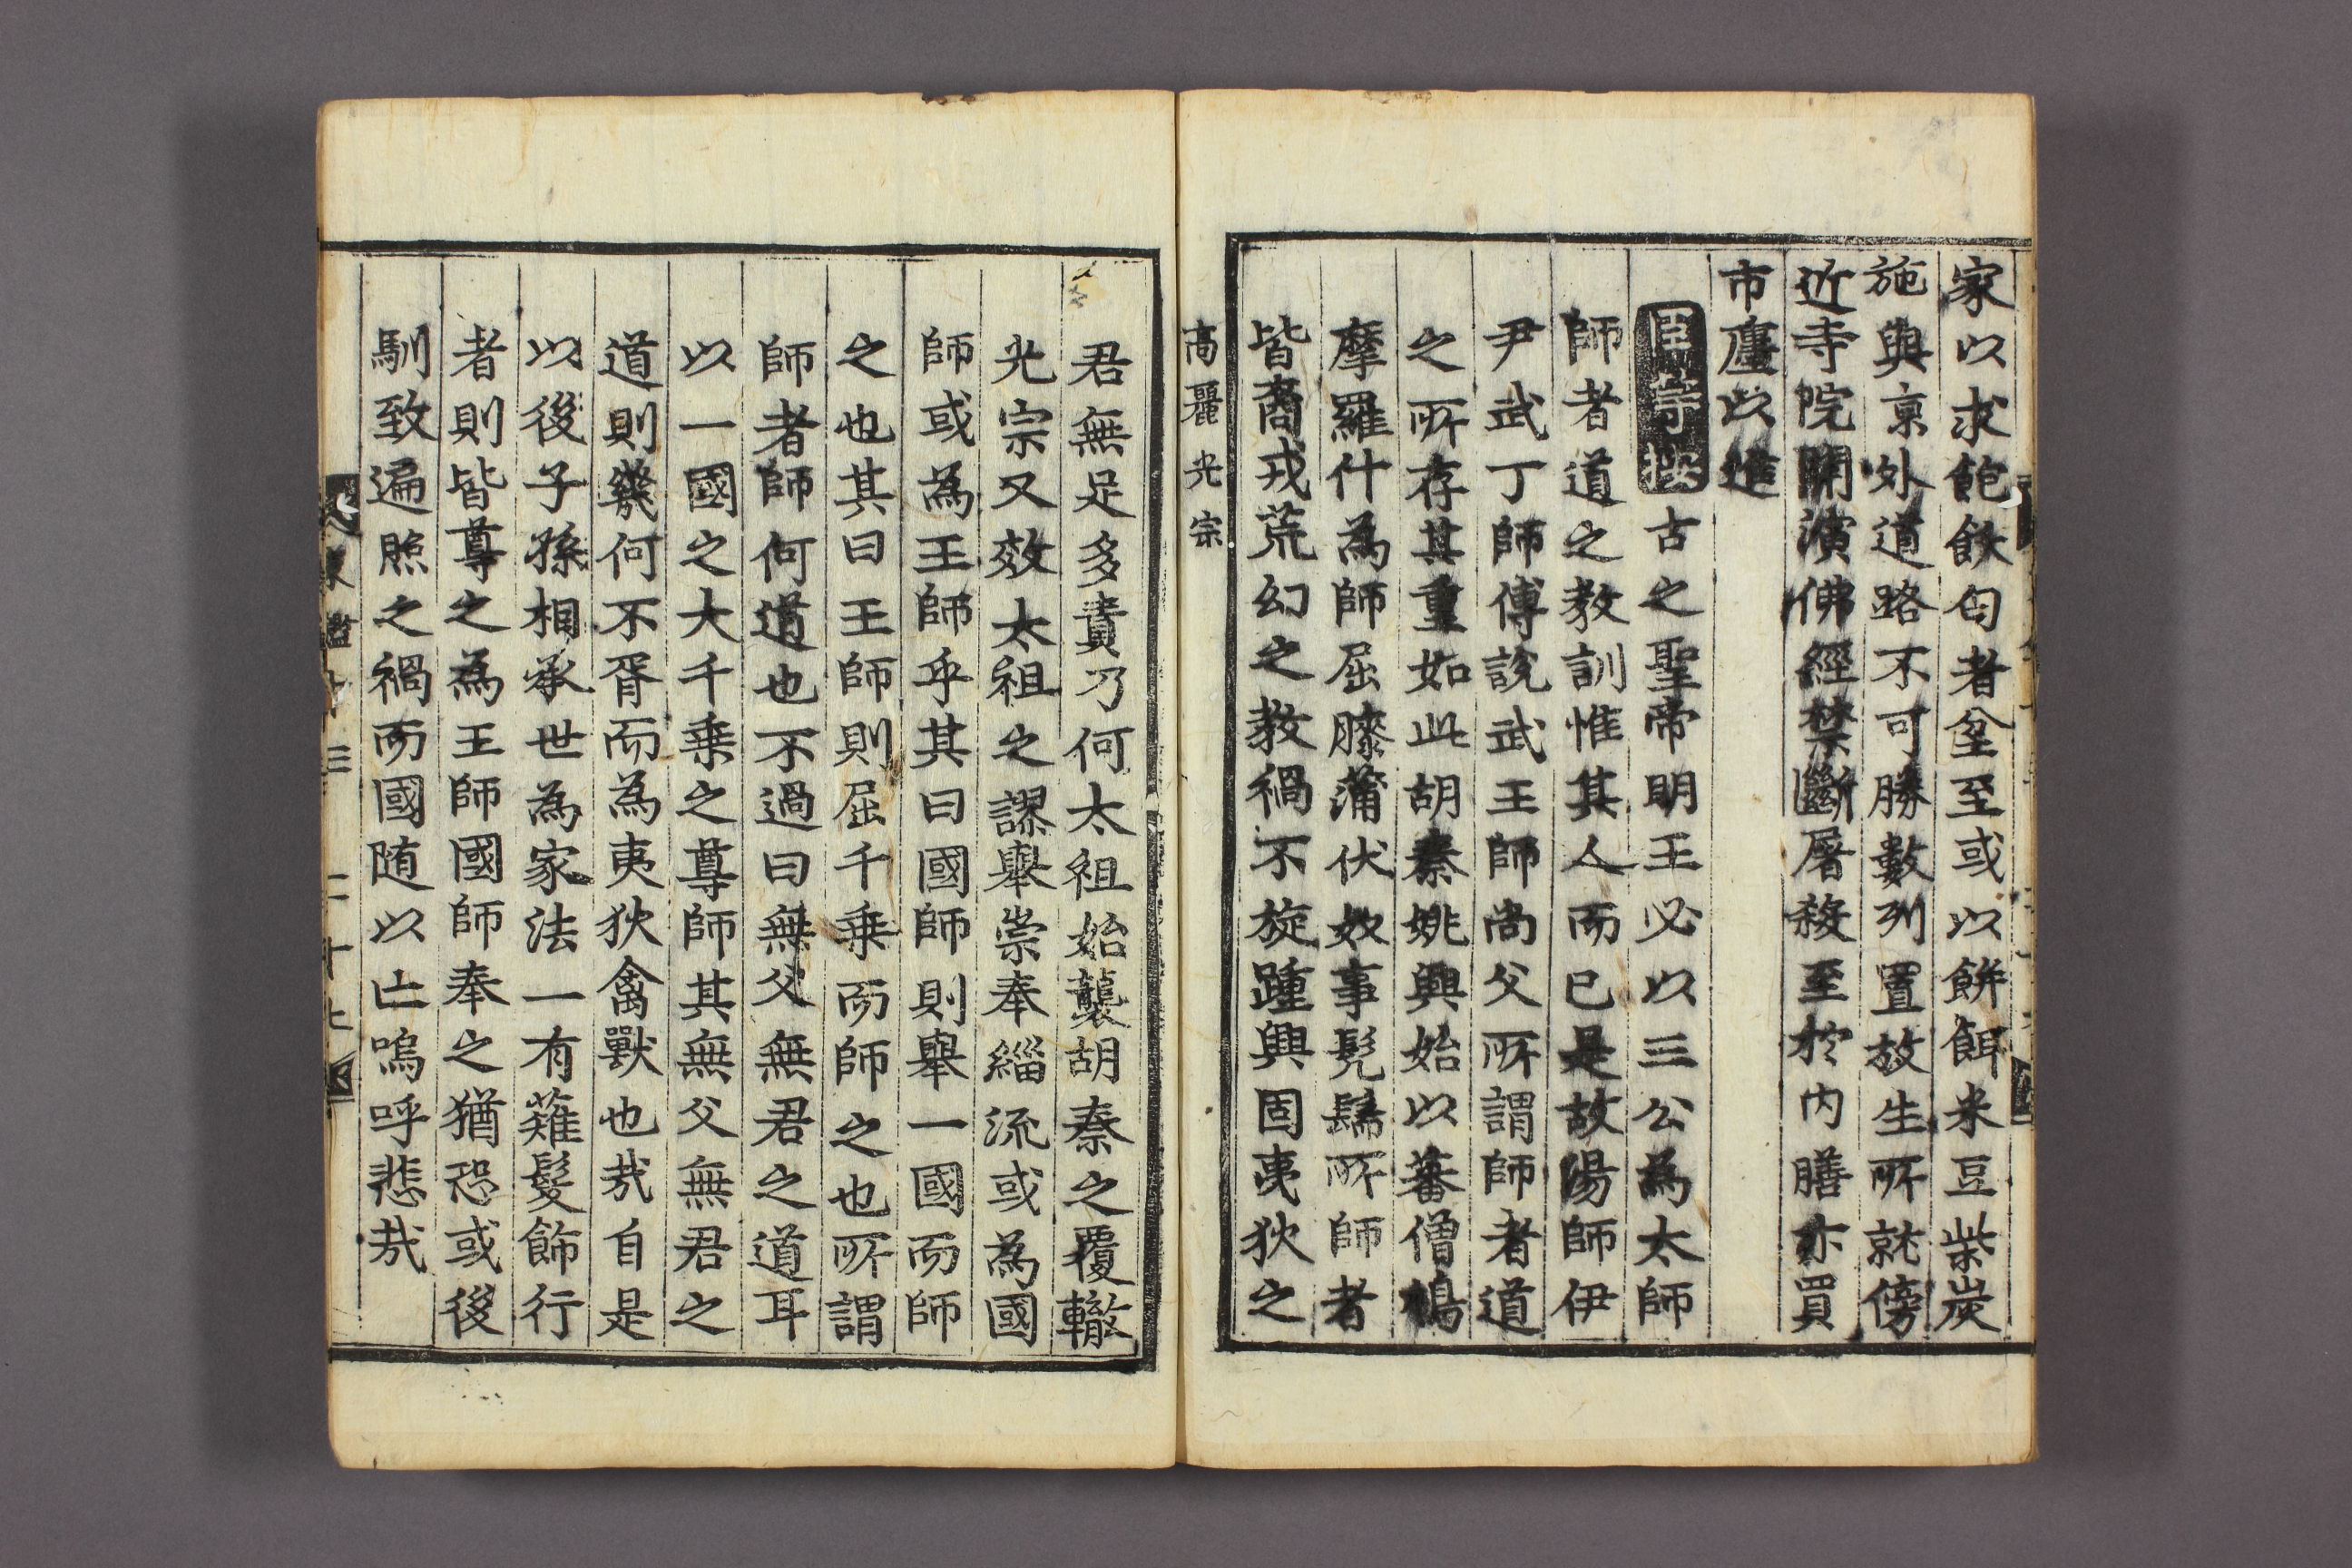 家以求飽飫匂者坌至或以餅餌米豆柴炭
施與京外道路不可勝數列置放生所就傍
近寺院開演佛經禁斷屠殺至於内膳亦買
市廛以進
臣崇按古之聖帝明王必以三公為太師
師者道之教訓惟其人而已是故湯師伊
尹武丁師傅說武王師尚父所謂師者道
之所存其重如此胡秦姚興始以蕃僧鳩
摩羅什為師屈膝蒲伏奴事髡䰂所師者
皆裔戎荒幻之教禍不旋踵興固夷狄之
高麗光宗
君無足多責乃何太祖始襲胡秦之覆轍
光宗又效太祖之謬舉崇奉緇流或為國
師或為王師乎其曰國師則舉一國而師
之也其曰王師則屈千乗而師之也所謂
師者師何道也不過曰無父無君之道耳
以一國之大千乗之尊師其無父無君之
道則幾何不胥而為夷狄禽獸也㢤自是
以後子孫相承世為家法一有薙髮飾行
者則皆尊之為王師國師奉之猶恐或後
馴致遍照之禍而國随以亡嗚呼悲㢤
三 二十七